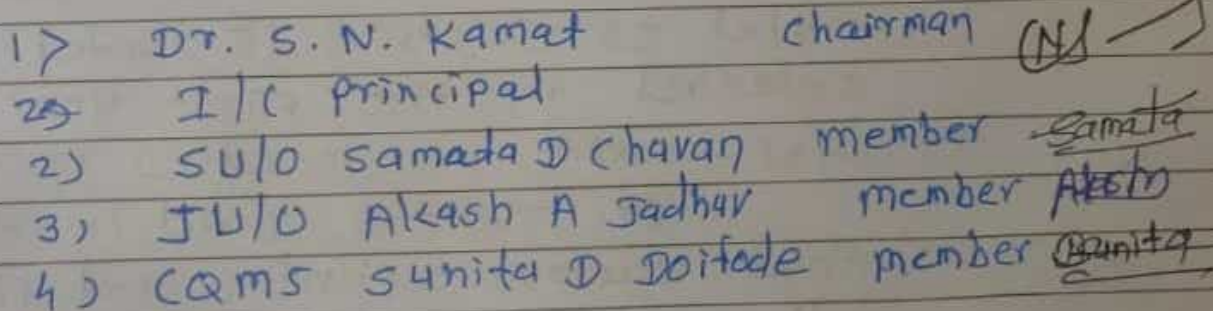 1> Dr. S. N. Kamat Chairman
I/C principal
2) SU/O Samata D Chavan member Samata
3) JU/O Akash A Jadhav member Akash
4) CQMS Sunita D Doifode member Sunita